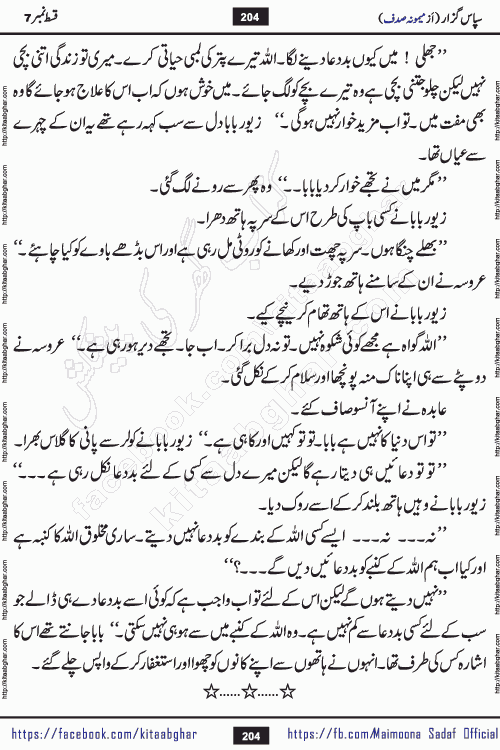 سپاس گزار (از میمونہ صدف)
204
قسط نمبر 7
’’جھلی ! میں کیوں بددعا دینے لگا۔ اللہ تیرے پتر کی لمبی حیاتی کرے۔ میری تو زندگی اتنی بچی
نہیں لیکن چلو جتنی بچی ہے وہ تیرے بچے کو لگ جائے۔ میں خوش ہوں کہ اب اس کا علاج ہو جائے گا وہ
بھی مفت میں۔ تو اب مزید خوار نہیں ہوگی۔‘‘ زیور بابا دل سے سب کہہ رہے تھے یہ ان کے چہرے
سے عیاں تھا۔
’’مگر میں نے تجھے خوار کر دیا بابا۔۔‘‘ وہ پھر سے رونے لگ گئی۔
زیور بابا نے کسی باپ کی طرح اس کے سر پہ ہاتھ دھرا۔
’’بھلے چنگا ہوں۔ سر پہ چھت اور کھانے کو روٹی مل رہی ہے اور اس بڈھے باوے کو کیا چاہئے۔‘‘
عروسہ نے ان کے سامنے ہاتھ جوڑ دیے۔
زیور بابا نے اس کے ہاتھ تھام کر نیچے کیے۔
’’اللہ گواہ ہے مجھے کوئی شکوہ نہیں۔ تو نہ دل برا کر۔ اب جا۔ تجھے دیر ہو رہی ہے۔‘‘ عروسہ نے
دوپٹے سے ہی اپنا ناک منہ پونچھا اور سلام کر کے نکل گئی۔
عابدہ نے اپنے آنسو صاف کئے۔
’’تو اس دنیا کا نہیں ہے بابا۔ تو تو کہیں اور کا ہی ہے۔‘‘ زیور بابا نے کولر سے پانی کا گلاس بھرا۔
’’تو تو دعائیں ہی دیتا رہے گا لیکن میرے دل سے کسی کے لئے بددعا نکل رہی ہے ۔۔۔‘‘
زیور بابا نے وہیں ہاتھ بلند کر کے اسے روک دیا۔
’’نہ۔۔۔ نہ۔۔۔ ایسے کسی اللہ کے بندے کو بددعا نہیں دیتے۔ ساری مخلوق اللہ کا کنبہ ہے
اور کیا اب ہم اللہ کے کنبے کو بددعائیں دیں گے۔۔۔؟‘‘
’’نہیں دیتے ہوں گے لیکن اس کے لئے تو اب واجب ہے کہ کوئی اسے بددعا دے ہی ڈالے جو
سب کے لئے کسی بددعا سے کم نہیں ہے۔ وہ اللہ کے کنبے میں سے ہو ہی نہیں سکتی۔‘‘ بابا جانتے تھے اس کا
اشارہ کس کی طرف تھا۔ انہوں نے ہاتھوں سے اپنے کانوں کو چھوا اور استغفار کر کے واپس چلے گئے۔
☆......☆......☆
https://facebook.com/kitaabghar
204
https://fb.com/Maimoona Sadaf Official
http://kitaabghar.com
کتاب گھر کی پیشکش
facebook.com/kitaabghar
kitaabghar.com